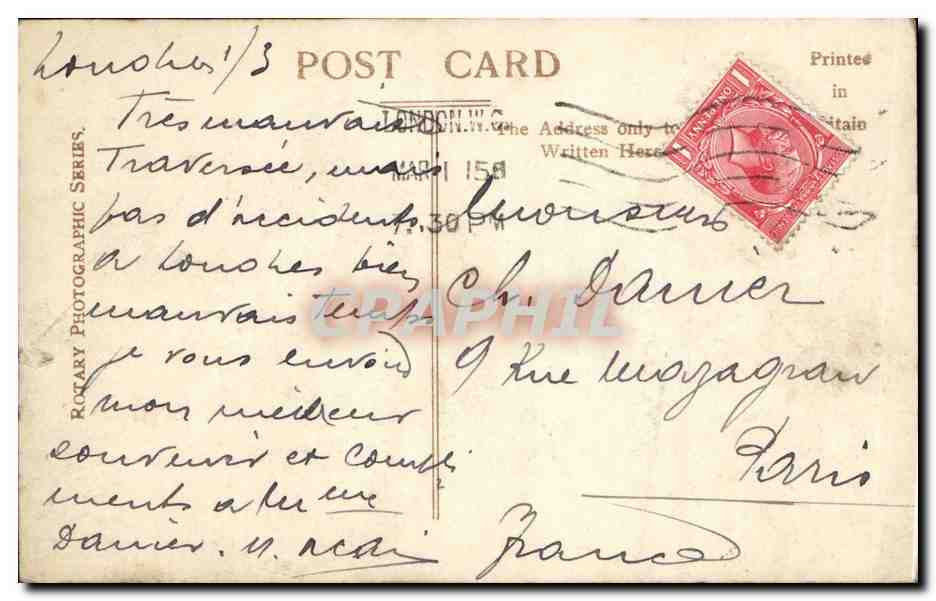 Londres 1/3
POST CARD
Printed
in
Britain
The Address only to
Written Here
LONDON.W.C.
MAR 1 15
7.30 PM
ONE PENNY
ROTARY PHOTOGRAPHIC SERIES.
Très mauvaise
Traversée, mais
pas d'accidents.
a Londres bien
mauvais temps
je vous envoie
mon meilleur
souvenir et compli
ments a Mme
Danier.
Monsieur
Ch. Danier
9 Rue Mazagran
Paris
France
CPAPHIL